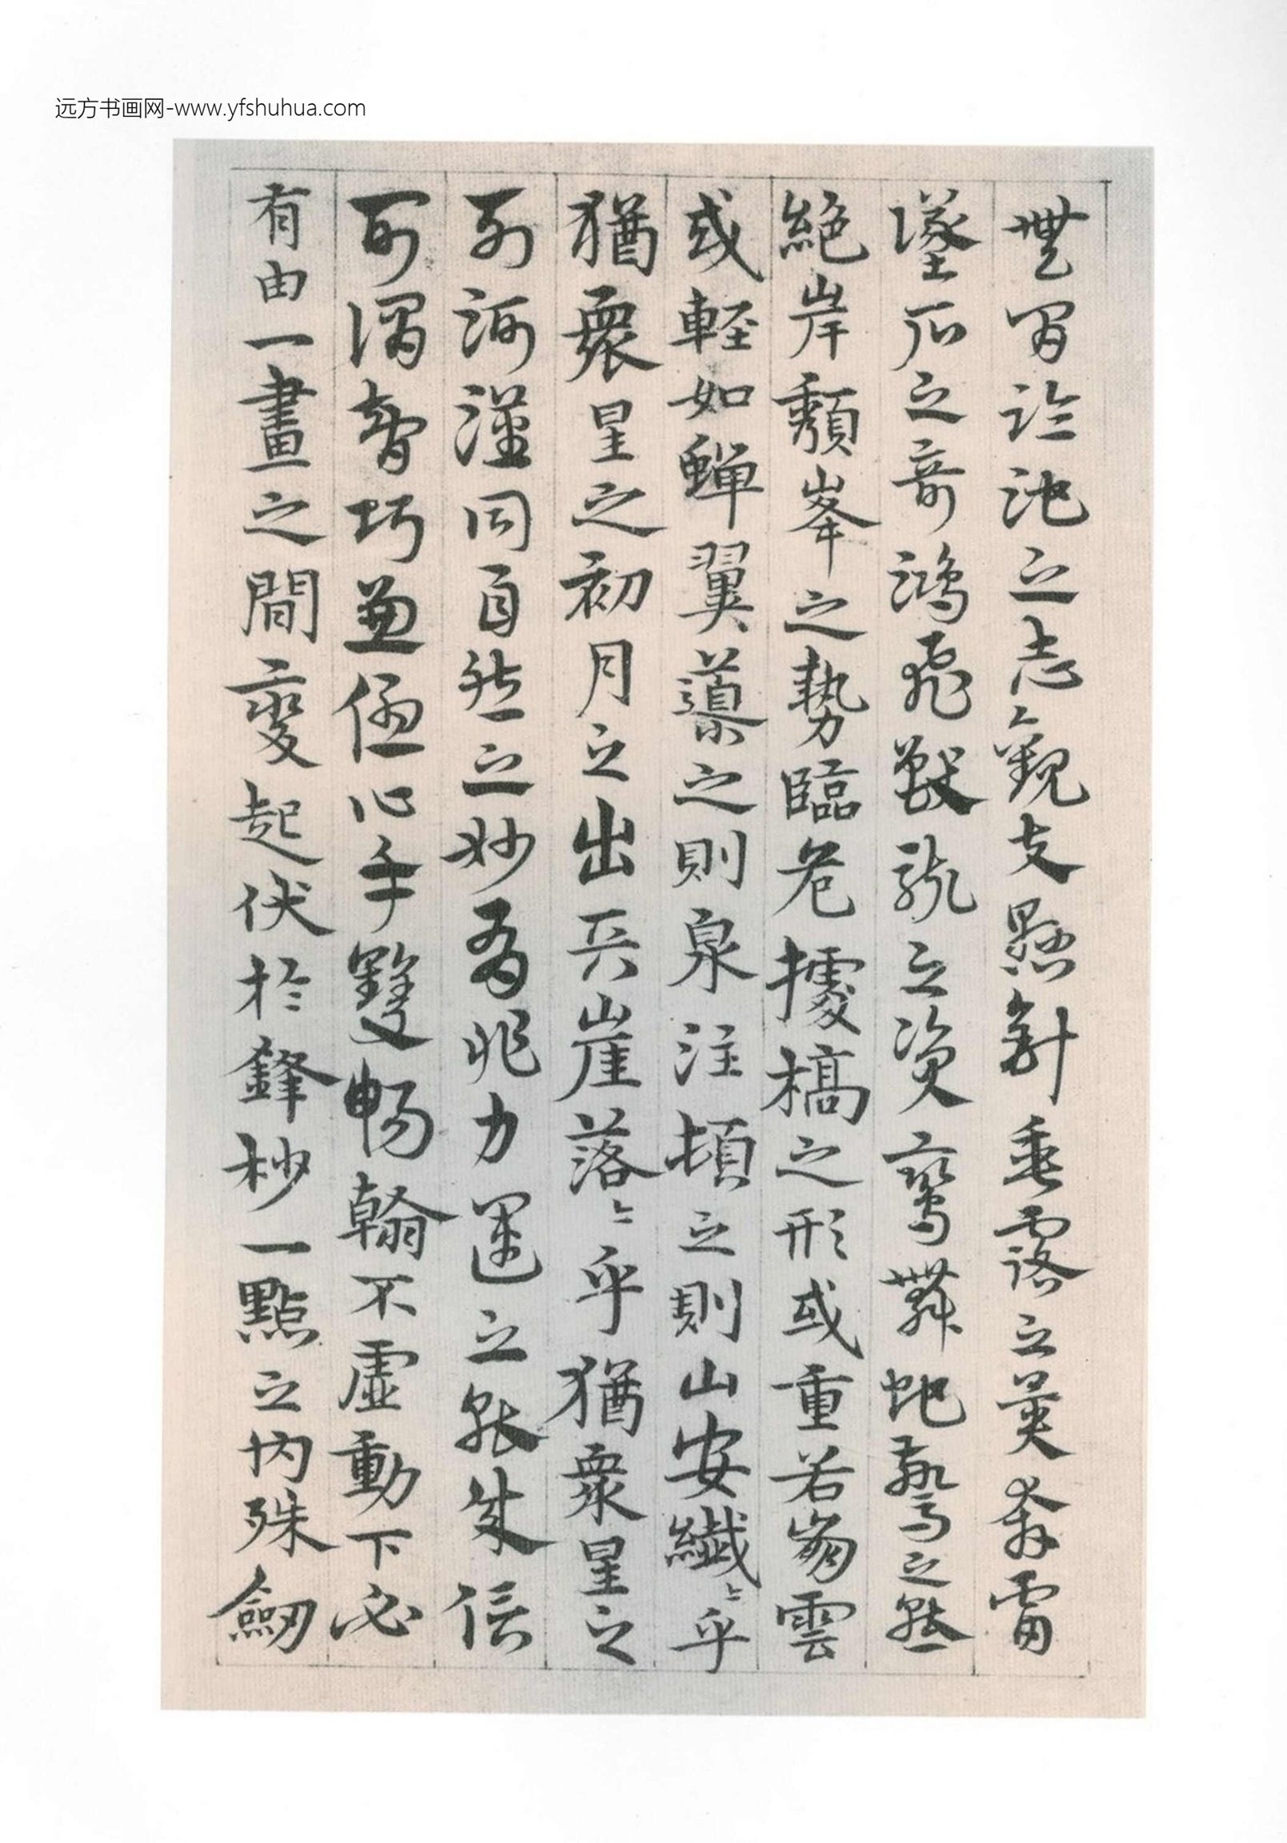 远方书画网-www.yfshuhua.com
無間臨池之志觀夫懸針垂露之異奔雷
墜石之奇鴻飛獸駭之資鸞舞蛇驚之態
絕岸頹峯之勢臨危據槁之形或重若崩雲
或輕如蟬翼導之則泉注頓之則山安纖々乎
猶衆星之初月之出天崖落々乎猶衆星之
列河漢同自然之妙有非力運之能成信
可謂智巧兼優心手雙暢翰不虛動下必
有由一畫之間變起伏於鋒杪一點之內殊衂